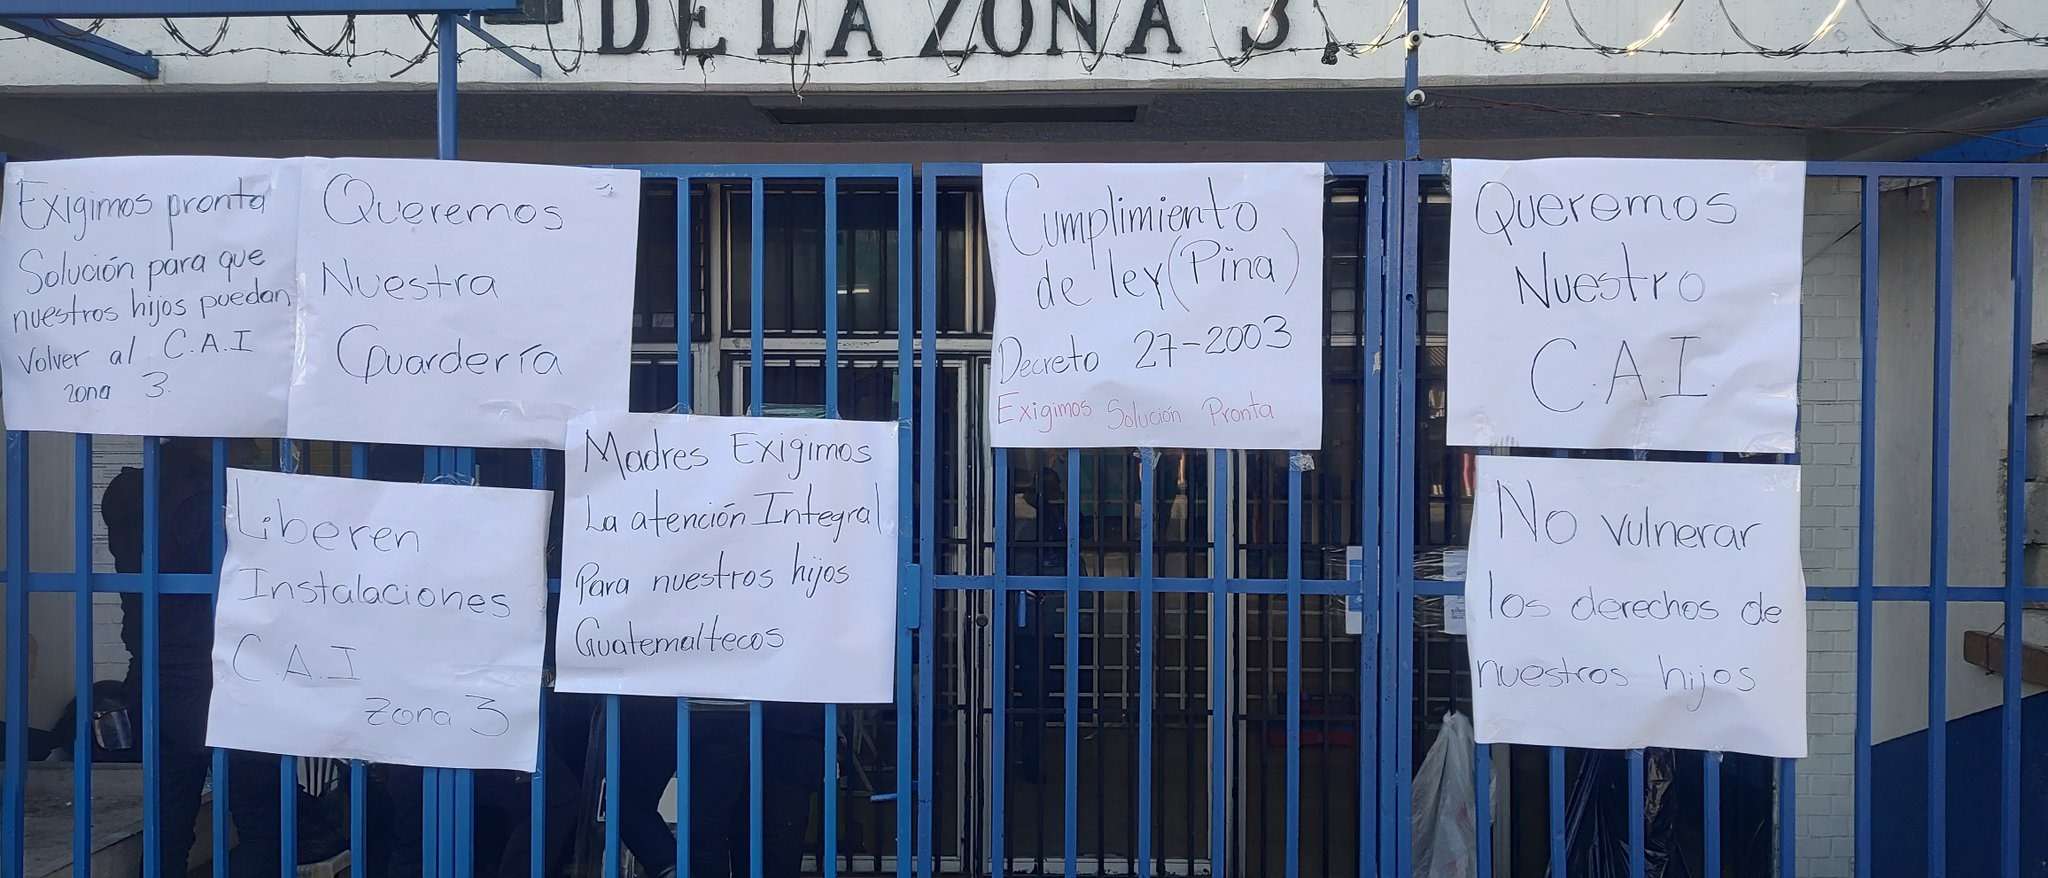 DE LA ZONA 3
Exigimos pronta
Solución para que
nuestros hijos puedan
volver al C.A.I
zona 3.
Queremos
Nuestra
Guardería
Liberen
Instalaciones
C.A.I
Zona 3
Madres Exigimos
La atención Integral
Para nuestros hijos
Guatemaltecos
Cumplimiento
de ley (Pina)
Decreto 27-2003
Exigimos Solución Pronta
Queremos
Nuestro
C.A.I.
No vulnerar
los derechos de
nuestros hijos